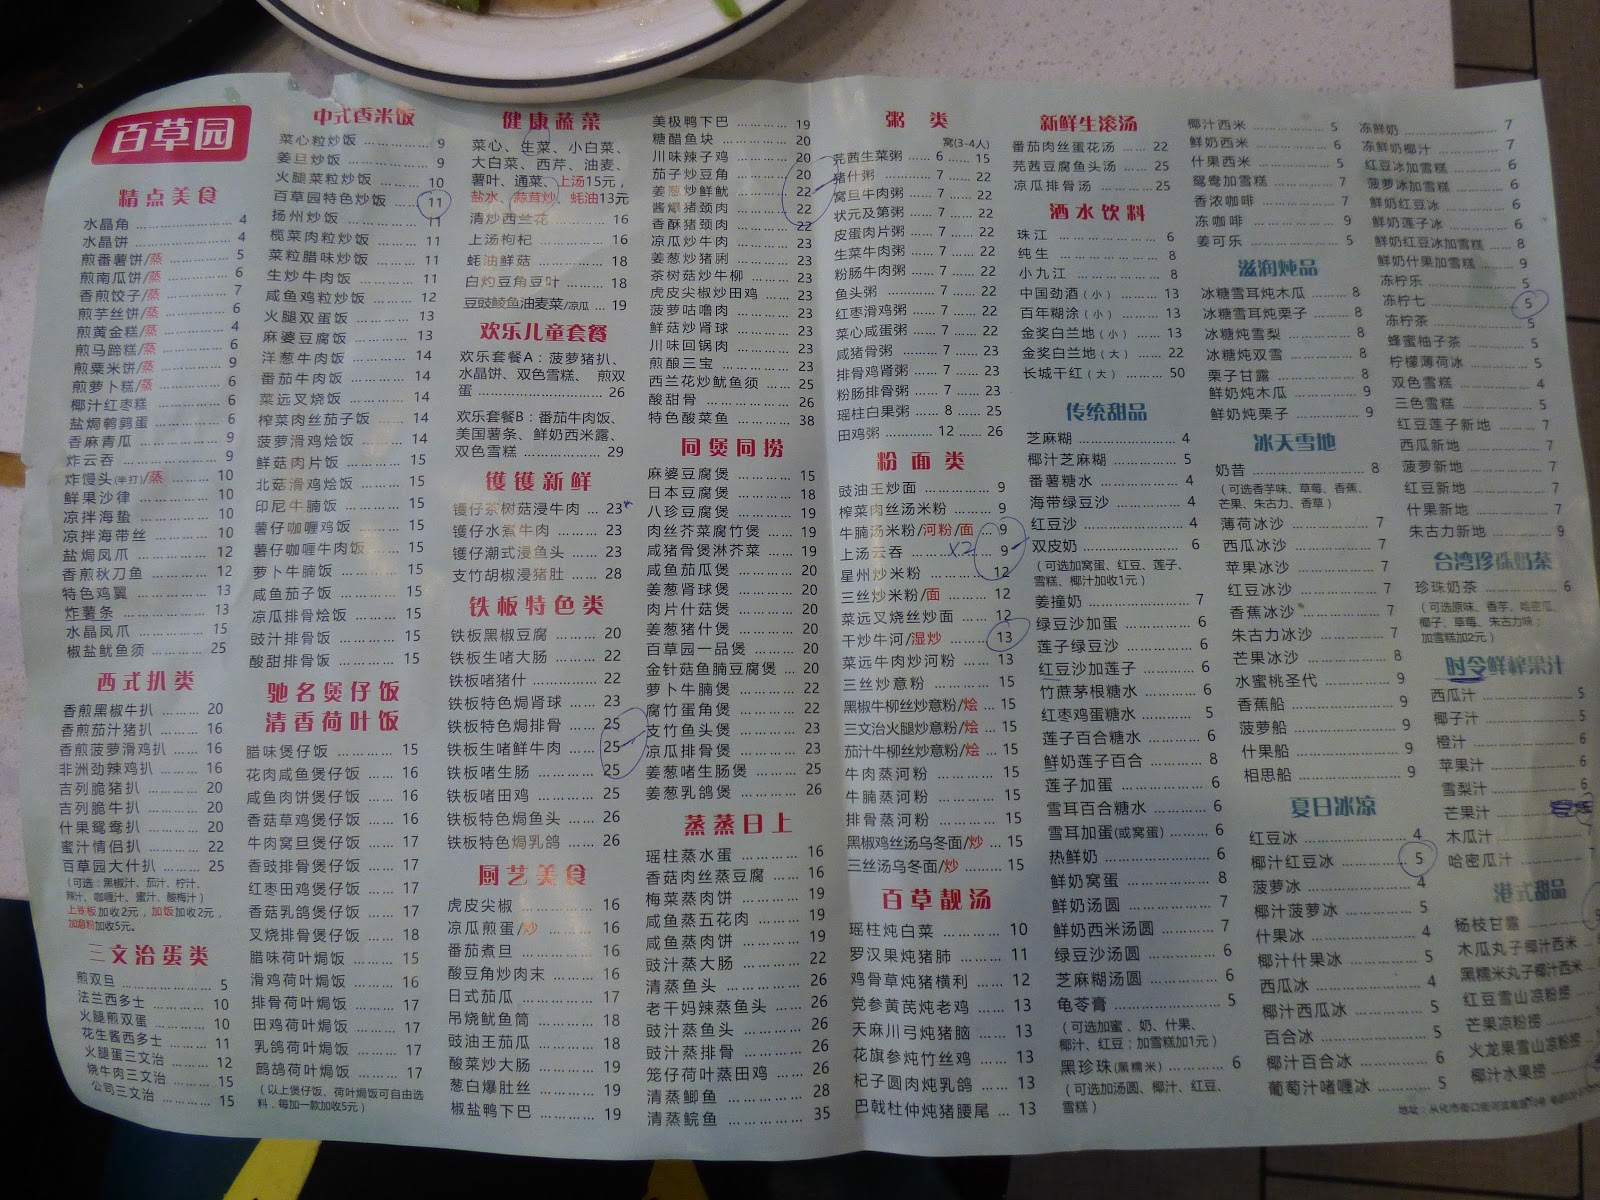 百草园
精点美食
水晶角 4
水晶饼 4
煎番薯饼/蒸 5
煎南瓜饼/蒸 6
香煎饺子/蒸 7
煎芋丝饼/蒸 6
煎黄金糕/蒸 4
煎马蹄糕/蒸 6
煎粟米饼/蒸 9
煎萝卜糕/蒸 6
椰汁红枣糕 6
盐焗鹌鹑蛋 6
香麻青瓜 9
炸云吞 9
炸馒头(半打)/蒸 10
鲜果沙律 10
凉拌海蛰 10
凉拌海带丝 10
盐焗凤爪 12
香煎秋刀鱼 12
特色鸡翼 13
炸薯条 13
水晶凤爪 15
椒盐鱿鱼须 25
西式扒类
香煎黑椒牛扒 20
香煎茄汁猪扒 16
香煎菠萝滑鸡扒 16
非洲劲辣鸡扒 16
吉列脆猪扒 20
吉列脆牛扒 20
什果鸳鸯扒 20
蜜汁情侣扒 22
百草园大什扒 25
(可选:黑椒汁、茄汁、柠汁、
辣汁、咖喱汁、蜜汁、酸梅汁)
上铁板加收2元,加饭加收2元,
加意粉加收5元。
三文治蛋类
煎双旦 5
法兰西多士 10
火腿煎双蛋 10
花生酱西多士 11
火腿蛋三文治 12
烧牛肉三文治 15
公司三文治 15
中式香米饭
菜心粒炒饭 9
姜旦炒饭 9
火腿菜粒炒饭 10
百草园特色炒饭 11
扬州炒饭 11
榄菜肉粒炒饭 11
菜粒腊味炒饭 11
生炒牛肉饭 11
咸鱼鸡粒炒饭 12
火腿双蛋饭 13
麻婆豆腐饭 13
洋葱牛肉饭 14
番茄牛肉饭 14
菜远叉烧饭 14
榨菜肉丝茄子饭 14
菠萝滑鸡烩饭 14
鲜菇肉片饭 15
北菇滑鸡烩饭 15
印尼牛腩饭 15
薯仔咖喱鸡饭 15
薯仔咖喱牛肉饭 15
萝卜牛腩饭 15
咸鱼茄子饭 15
凉瓜排骨烩饭 15
豉汁排骨饭 15
酸甜排骨饭 15
驰名煲仔饭
清香荷叶饭
腊味煲仔饭 15
花肉咸鱼煲仔饭 16
咸鱼肉饼煲仔饭 16
香菇草鸡煲仔饭 16
牛肉窝旦煲仔饭 17
香豉排骨煲仔饭 17
红枣田鸡煲仔饭 17
香菇乳鸽煲仔饭 17
叉烧排骨煲仔饭 18
腊味荷叶焗饭 15
滑鸡荷叶焗饭 16
排骨荷叶焗饭 17
田鸡荷叶焗饭 17
乳鸽荷叶焗饭 17
鹧鸪荷叶焗饭 17
(以上煲仔饭、荷叶焗饭可自由选
料,每加一款加收5元)
健康蔬菜
菜心、生菜、小白菜、
大白菜、西芹、油麦、
薯叶、通菜、上汤15元,
盐水、蒜茸炒、蚝油13元
清炒西兰花 16
上汤枸杞 16
蚝油鲜菇 18
白灼豆角豆叶 18
豆豉鲮鱼油麦菜/凉瓜 19
欢乐儿童套餐
欢乐套餐A:菠萝猪扒、
水晶饼、双色雪糕、煎双
蛋 26
欢乐套餐B:番茄牛肉饭、
美国薯条、鲜奶西米露、
双色雪糕 29
镬镬新鲜
镬仔茶树菇浸牛肉 23
镬仔水煮牛肉 23
镬仔潮式浸鱼头 23
支竹胡椒浸猪肚 28
铁板特色类
铁板黑椒豆腐 20
铁板生啫大肠 22
铁板啫猪什 22
铁板特色焗肾球 23
铁板特色焗排骨 25
铁板生啫鲜牛肉 25
铁板啫生肠 25
铁板啫田鸡 25
铁板特色焗鱼头 26
铁板特色焗乳鸽 26
厨艺美食
虎皮尖椒 16
凉瓜煎蛋/炒 16
番茄煮旦 16
酸豆角炒肉末 16
日式茄瓜 17
吊烧鱿鱼筒 18
豉油王茄瓜 18
酸菜炒大肠 19
葱白爆肚丝 19
椒盐鸭下巴 19
美极鸭下巴 19
糖醋鱼块 20
川味辣子鸡 20
茄子炒豆角 20
姜葱炒鲜鱿 22
酱爆猪颈肉 22
香酥猪颈肉 22
凉瓜炒牛肉 23
姜葱炒猪脷 23
茶树菇炒牛柳 23
虎皮尖椒炒田鸡 23
菠萝咕噜肉 23
鲜菇炒肾球 23
川味回锅肉 23
煎酿三宝 23
西兰花炒鱿鱼须 25
酸甜骨 25
特色酸菜鱼 38
同煲同捞
麻婆豆腐煲 15
日本豆腐煲 18
八珍豆腐煲 19
肉丝芥菜腐竹煲 19
咸猪骨煲淋芥菜 19
咸鱼茄瓜煲 20
姜葱肾球煲 20
肉片什菇煲 20
姜葱猪什煲 20
百草园一品煲 20
金针菇鱼腩豆腐煲 20
萝卜牛腩煲 22
腐竹蛋角煲 22
支竹鱼头煲 23
凉瓜排骨煲 23
姜葱啫生肠煲 25
姜葱乳鸽煲 26
蒸蒸日上
瑶柱蒸水蛋 16
香菇肉丝蒸豆腐 16
梅菜蒸肉饼 19
咸鱼蒸五花肉 19
咸鱼蒸肉饼 19
豉汁蒸大肠 22
清蒸鱼头 26
老干妈辣蒸鱼头 26
豉汁蒸鱼头 26
豉汁蒸排骨 26
笼仔荷叶蒸田鸡 26
清蒸鲫鱼 28
清蒸鲩鱼 35
粥类
窝(3-4人)
芫茜生菜粥 6 15
猪什粥 7 22
窝旦牛肉粥 7 22
状元及第粥 7 22
皮蛋肉片粥 7 22
生菜牛肉粥 7 22
粉肠牛肉粥 7 22
鱼头粥 7 22
红枣滑鸡粥 7 22
菜心咸蛋粥 7 22
咸猪骨粥 7 23
排骨鸡肾粥 7 23
粉肠排骨粥 7 23
瑶柱白果粥 8 25
田鸡粥 12 26
粉面类
豉油王炒面 9
榨菜肉丝汤米粉 9
牛腩汤米粉/河粉/面 9
上汤云吞 x2 9
星州炒米粉 12
三丝炒米粉/面 12
菜远叉烧丝炒面 12
干炒牛河/湿炒 13
菜远牛肉炒河粉 13
三丝炒意粉 15
黑椒牛柳丝炒意粉/烩 15
三文治火腿炒意粉/烩 15
茄汁牛柳丝炒意粉/烩 15
牛肉蒸河粉 15
牛腩蒸河粉 15
排骨蒸河粉 15
黑椒鸡丝汤乌冬面/炒 15
三丝汤乌冬面/炒 15
百草靓汤
瑶柱炖白菜 10
罗汉果炖猪肺 11
鸡骨草炖猪横利 12
党参黄芪炖老鸡 13
天麻川弓炖猪脑 13
花旗参炖竹丝鸡 13
杞子圆肉炖乳鸽 13
巴戟杜仲炖猪腰尾 13
新鲜生滚汤
番茄肉丝蛋花汤 22
芫茜豆腐鱼头汤 25
凉瓜排骨汤 25
酒水饮料
珠江 6
纯生 8
小九江 8
中国劲酒(小) 13
百年糊涂(小) 13
金奖白兰地(小) 13
金奖白兰地(大) 22
长城干红(大) 50
传统甜品
芝麻糊 4
椰汁芝麻糊 5
番薯糖水 4
海带绿豆沙 4
红豆沙 4
双皮奶 6
(可选加窝蛋、红豆、莲子、
雪糕、椰汁加收1元)
姜撞奶 7
绿豆沙加蛋 6
莲子绿豆沙 6
红豆沙加莲子 6
竹蔗茅根糖水 6
红枣鸡蛋糖水 5
莲子百合糖水 6
鲜奶莲子百合 8
莲子加蛋 6
雪耳百合糖水 6
雪耳加蛋(或窝蛋) 6
热鲜奶 6
鲜奶窝蛋 8
鲜奶汤圆 7
鲜奶西米汤圆 7
绿豆沙汤圆 6
芝麻糊汤圆 6
龟苓膏 5
(可选加蜜、奶、什果、
椰汁、红豆;加雪糕加1元)
黑珍珠(黑糯米) 6
(可选加汤圆、椰汁、红豆、
雪糕)
椰汁西米 5
鲜奶西米 6
什果西米 5
鸳鸯加雪糕 7
香浓咖啡 7
冻咖啡 9
姜可乐 5
滋润炖品
冰糖雪耳炖木瓜 8
冰糖雪耳炖栗子 8
冰糖炖雪梨 8
冰糖炖双雪 8
栗子甘露 8
鲜奶炖木瓜 9
鲜奶炖栗子 9
冰天雪地
奶昔 8
(可选香芋味、草莓、香蕉、
芒果、朱古力、香草)
薄荷冰沙 7
西瓜冰沙 7
苹果冰沙 7
红豆冰沙 7
香蕉冰沙 7
朱古力冰沙 7
芒果冰沙 8
水蜜桃圣代 9
香蕉船 9
菠萝船 9
什果船 9
相思船 9
夏日冰凉
红豆冰 4
椰汁红豆冰 5
菠萝冰 4
椰汁菠萝冰 5
什果冰 4
椰汁什果冰 5
西瓜冰 4
椰汁西瓜冰 5
百合冰 5
椰汁百合冰 6
葡萄汁啫喱冰 5
冻鲜奶 7
冻鲜奶椰汁 7
红豆冰加雪糕 6
菠萝冰加雪糕 6
鲜奶红豆冰 6
鲜奶莲子冰 6
鲜奶红豆冰加雪糕 8
鲜奶什果加雪糕 9
冻柠乐 5
冻柠七 5
冻柠茶 5
蜂蜜柚子茶 5
柠檬薄荷冰 5
双色雪糕 4
三色雪糕 5
红豆莲子新地 7
西瓜新地 7
菠萝新地 7
红豆新地 7
什果新地 7
朱古力新地 9
台湾珍珠奶茶
珍珠奶茶 6
(可选原味、香芋、哈密瓜、
椰子、草莓、朱古力味;
加雪糕加2元)
时令鲜榨果汁
西瓜汁 5
椰子汁 5
橙汁 6
苹果汁 6
雪梨汁 6
芒果汁
木瓜汁
哈密瓜汁 7
港式甜品
杨枝甘露
木瓜丸子椰汁西米
黑糯米丸子椰汁西米
红豆雪山凉粉捞
芒果凉粉捞
火龙果雪山凉粉捞
椰汁水果捞